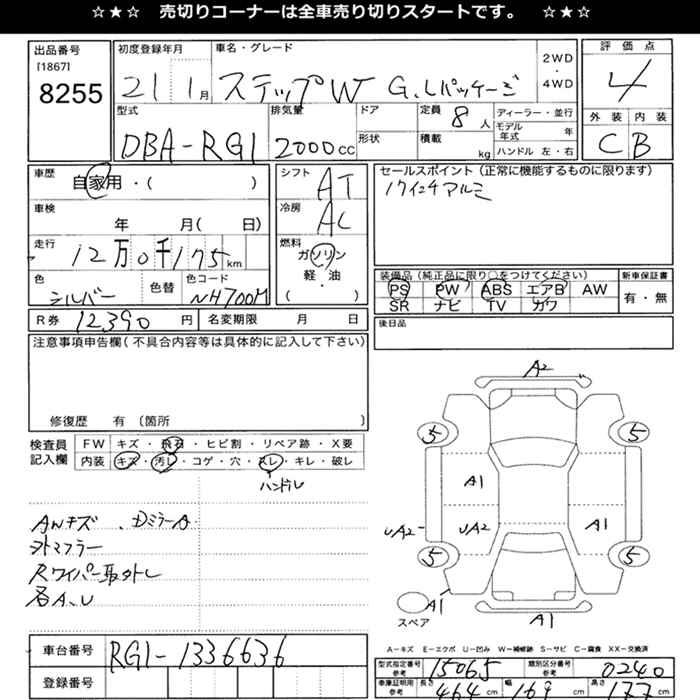 ☆★☆ 売切りコーナーは全車売り切りスタートです。 ☆★☆
出品番号
[1867]
8255
初度登録年月
21 1月
車名・グレード
ステップW G、Lパッケージ
2WD
・
4WD
評価点
4
型式
DBA-RG1
排気量
2000cc
ドア
形状
定員 8人
積載 kg
ディーラー・並行
モデル年式 年
ハンドル 左・右
外装 内装
C B
車歴
自家用・( )
車検
年 月( 日)
走行
12万0千175km
色
シルバー
色替
色コード
NH700M
シフト
AT
冷房
AC
燃料
ガソリン
軽・油
( )
セールスポイント(正常に機能するものに限ります)
17インチアルミ
装備品(純正品に限り○をつけてください)
PS PW ABS エアB AW
SR ナビ TV カワ
新車保証書
有・無
R券 12,390円
名変期限 月 日
後日品
注意事項申告欄(不具合内容等は具体的に記入して下さい)
修復歴 有 (箇所 )
検査員記入欄
FW キズ・飛石・ヒビ割・リペア跡・X要
内装 キズ・汚レ・コゲ・穴・スレ・キレ・破レ
ハンドル
AWキズ、DミラーA.
外マフラー
Rワイパー取外し
各A、U
A2
5 5
A1
UA2 UA2 A1
5 5
スペア
A1
A1
A-キズ E-エクボ U-凹み W-補修跡 S-サビ C-腐食 XX-交換済
車台番号
RG1-1336636
登録番号
型式指定番号 参考 15065
類別区分番号 参考 0240
車庫証明用 参考 長さ 464cm 幅 169cm 高さ 177cm